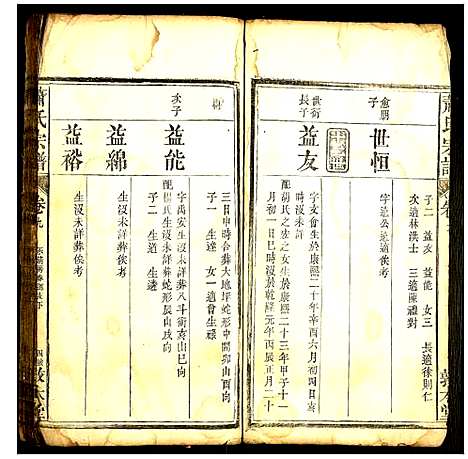 蕭氏宗譜
子二 益友 益能 女三 長適徐則仁
次適林洪士 三適陳禮對
愈朋子
世恒
字遠公遠適後考
世衍長子
益友
字友會生於康熙二十年辛酉六月初四日亥
時沒未詳
配胡氏之宏之女生於康熙二十三年甲子十一
月初一日巳時沒於乾隆元年丙辰正月二十
三日申時合葬大地坪蛇形中開卯山酉向
子一 生達 女一適曾生祿
次子
益能
字萬安生沒未詳葬八斗衝亥山巳向
配楊氏生沒未詳葬蛇形辰山戌向
子二 生適 生選
益綿
生沒未詳葬俟考
益裕
生沒未詳葬俟考
蕭氏宗譜
卷九
敦本堂